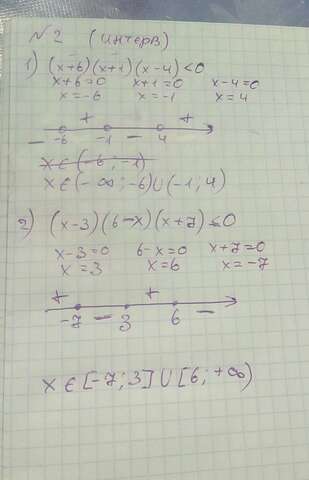 №2 (интерв)
1) (x+6)(x+1)(x-4)<0
x+6=0 x+1=0 x-4=0
x=-6 x=-1 x=4
+ +
-6 -1 4
- -
x∈(-6;-1)
x∈(-∞;-6)∪(-1;4)
2) (x-3)(6-x)(x+7)≤0
x-3=0 6-x=0 x+7=0
x=3 x=6 x=-7
+ +
-7 - 3 6 -
x∈[-7;3]∪[6;+∞)